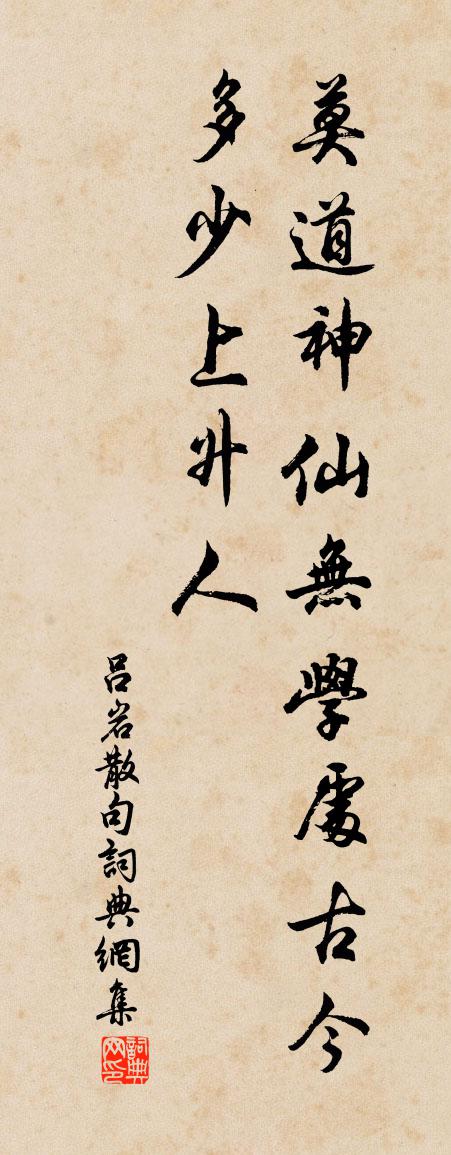 莫道神仙無學處古今
多少上升人
呂岩散句詞典網集
詞典网印